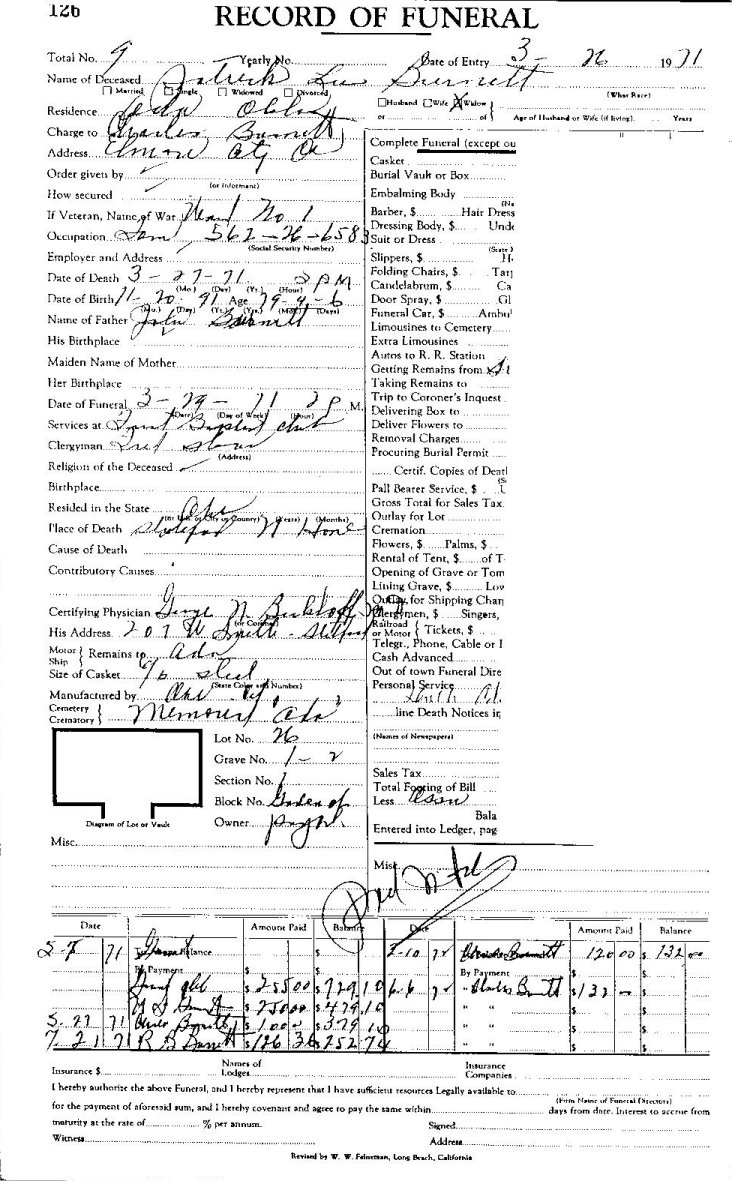 126
RECORD OF FUNERAL
Total No. 9 Yearly No. Date of Entry 3- 26 1971
Name of Deceased Patrick Lee Burnett
Married Single Widowed Divorced (What Race)
Residence Ada Okla Husband Wife X Widow
or of Age of Husband or Wife (if living) Years
Charge to Charles Burnett
Address Elmore City Ok
Order given by
(or informant)
How secured
If Veteran, Name of War War No 1
Occupation 562-26-6583
(Social Security Number)
Employer and Address
Date of Death 3-27-71 2 PM
(Mo.) (Day) (Yr.) (Hour)
Date of Birth 11-20-91 Age 79-4-6
(Mo.) (Day) (Yr.) (Yrs.) (Mos.) (Days)
Name of Father John Burnett
His Birthplace
Maiden Name of Mother
Her Birthplace
Date of Funeral 3-29-71 2 P M.
(Date) (Day of Week) (Hour)
Services at Baptist
Clergyman Fred
(Address)
Religion of the Deceased
Birthplace
Resided in the State
(or City or County) (Years) (Months)
Place of Death N Home
Cause of Death
Contributory Causes
Certifying Physician George N.
(or Coroner)
His Address 207 W
Motor Ship Remains to Ada
Size of Casket 6/6 steel
(State Color and Number)
Manufactured by
Cemetery Crematory Memorial Ada
Lot No. 26
Grave No. 1-2
Section No. 1
Block No. Garden of
Diagram of Lot or Vault Owner
Misc.
Complete Funeral (except ou
Casket
Burial Vault or Box
Embalming Body
(Na
Barber, $ Hair Dress
Dressing Body, $ Unde
Suit or Dress
(State
Slippers, $ H
Folding Chairs, $ Tarp
Candelabrum, $ Ca
Door Spray, $ Gl
Funeral Car, $ Ambul
Limousines to Cemetery
Extra Limousines
Autos to R. R. Station
Getting Remains from
Taking Remains to
Trip to Coroner's Inquest
Delivering Box to
Deliver Flowers to
Removal Charges
Procuring Burial Permit
Certif. Copies of Deatl
Pall Bearer Service, $
Gross Total for Sales Tax
Outlay for Lot
Cremation
Flowers, $ Palms, $
Rental of Tent, $ of T
Opening of Grave or Tom
Lining Grave, $ Low
Outlay for Shipping Char
Clergymen, $ Singers,
Railroad or Motor Tickets, $
Telegr., Phone, Cable or I
Cash Advanced
Out of town Funeral Dire
Personal Service
line Death Notices in
(Names of Newspapers)
Sales Tax
Total Footing of Bill
Less
Bala
Entered into Ledger, pag
Misc.
Date Amount Paid Balance Date Amount Paid Balance
5-5 71 To Balance 2-10 72 Charles Burnett 120 00 132 00
By Payment By Payment
255 00 729 10 6-6 72 Charles Burnett 132 -
250 00 479 10
5-27 71 Charles Burnett 100 00 379 10
7-21 71 R B Burnett 126 36 252 74
Insurance $ Names of Lodges Insurance Companies
I hereby authorize the above Funeral, and I hereby represent that I have sufficient resources Legally available to
(Firm Name of Funeral Directors)
for the payment of aforesaid sum, and I hereby covenant and agree to pay the same within days from date. Interest to accrue from
maturity at the rate of % per annum. Signed
Witness Address
Revised by W. W. Feineman, Long Beach, California